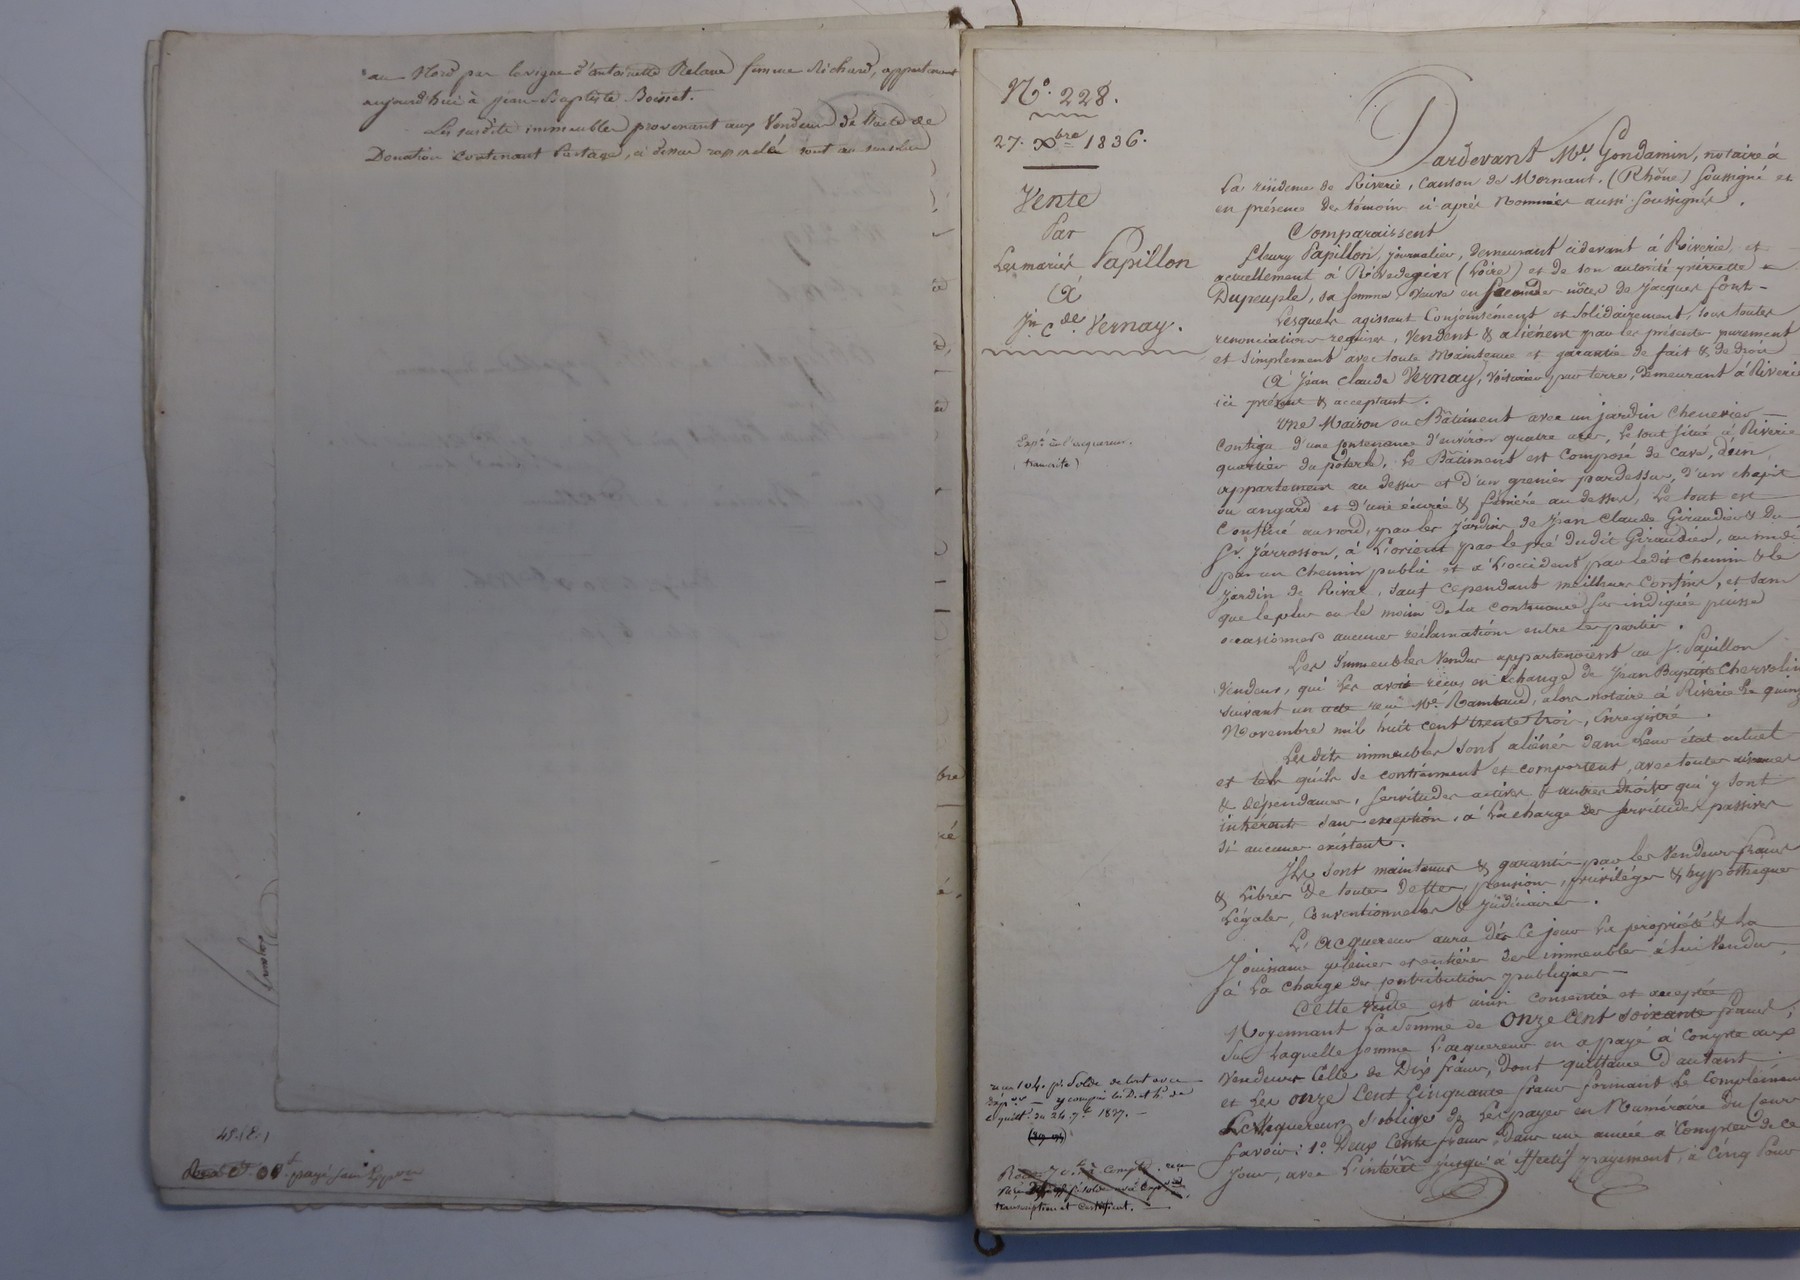 au Nord par la vigne d'antoinette Relave femme Richard, appartenant
aujourd'hui à jean-Baptiste Boisset.
Les susdits immeubles provenant aux Vendeurs de l'acte de
Donation contenant Partage, ci dessus rappelé sont au surplus
bre
é.
48. (8.)
payé sans
N.° 228.
27. Xbre 1836.
Vente
Par
Les mariés Papillon
à
Jn. Cde. Vernay.
Expon. à l'acquereur.
(transcrite)
reçu 104. pr. Solde de tout avec
y compris les D. et h. de
quitte. du 24. 7e. 1837. —
compte
transcription et certificat. —
Pardevant Me. Gondamin, notaire à
La résidence de Riverie, Canton de Mornant, (Rhône) soussigné et
en présence des témoins ci-après Nommés aussi soussignés.
Comparaissent
fleury Papillon, journalier, demeurant cidevant à Riverie, et
actuellement à Rivedegier (Loire) et de son autorité pierrette
Dupeuple, sa femme, Veuve en secondes nôces de Jacques font —
Lesquels agissant Conjointement et Solidairement, sous toutes
renonciations requises, Vendent & aliénent par les présentes purement
et simplement avec toute Maintenue et garantie de fait & de droit
à Jean Claude Vernay, voiturier par terre, demeurant à Riverie
ici présent & acceptant.
Une Maison ou Bâtiment avec un jardin chenevier —
contigu d'une contenance d'environ quatre ares, Le tout situé à Riverie
quartier du pôterle. Le Bâtiment est Composé de Cave, d'un
appartement au dessus et d'un grenier pardessus, d'un chapit
ou angard et d'une écurie & fénière au dessus, Le tout est
Confiné au nord, par les jardins de Jean Claude Giraudier & Du
Sr. Jarrosson, à L'orient par le pré dudit Giraudier, au midi
par un chemin public et à L'occident par ledit chemin & le
jardin de Rivat, sauf cependant meilleurs Confins, et sans
que le plus ou le moins de la contenance sus-indiquée puisse
occasionner aucunes réclamations entre les parties.
Les Immeubles Vendus appartenoient au Sr. Papillon
Vendeur, qui Les avoit reçus en échange de Jean Baptiste Chervolin
suivant un acte reçu Me. Rambaud, alors notaire à Riverie Le quinze
Novembre mil huit cent trente trois, Enregistré.
Lesdits immeubles sont aliénés dans Leur état actuel
et tels qu'ils se contiennent et comportent, avec toutes aisances
& dépendances, servitudes actives & autres droits qui y sont
inhérents sans exception, à La charge des servitudes passives
si aucunes existent.
Ils sont maintenus & garantis par les Vendeurs francs
& Libres de toutes dettes, pensions, privilèges & hypothèques
Légales, Conventionnelles & Judiciaires.
L'acquereur aura dès ce jour La propriété & La
Jouissance pleines et entières des immeubles à lui Vendus,
à La charge des contributions publiques —
Cette Vente est ainsi consentie et acceptée
Moyennant La somme de Onze Cent soixante francs,
sur Laquelle somme L'acquereur en a payé à Compte aux
Vendeurs Celle de Dix francs, dont quittance d'autant
et Les onze Cent Cinquante francs formant Le Complément
L'acquereur s'oblige de Les payer en Numéraire du Cours
Savoir: 1.° Deux Cents francs, Dans une année à Compter de ce
Jour, avec L'intérêt jusqu'à éffectif payement, à Cinq pour